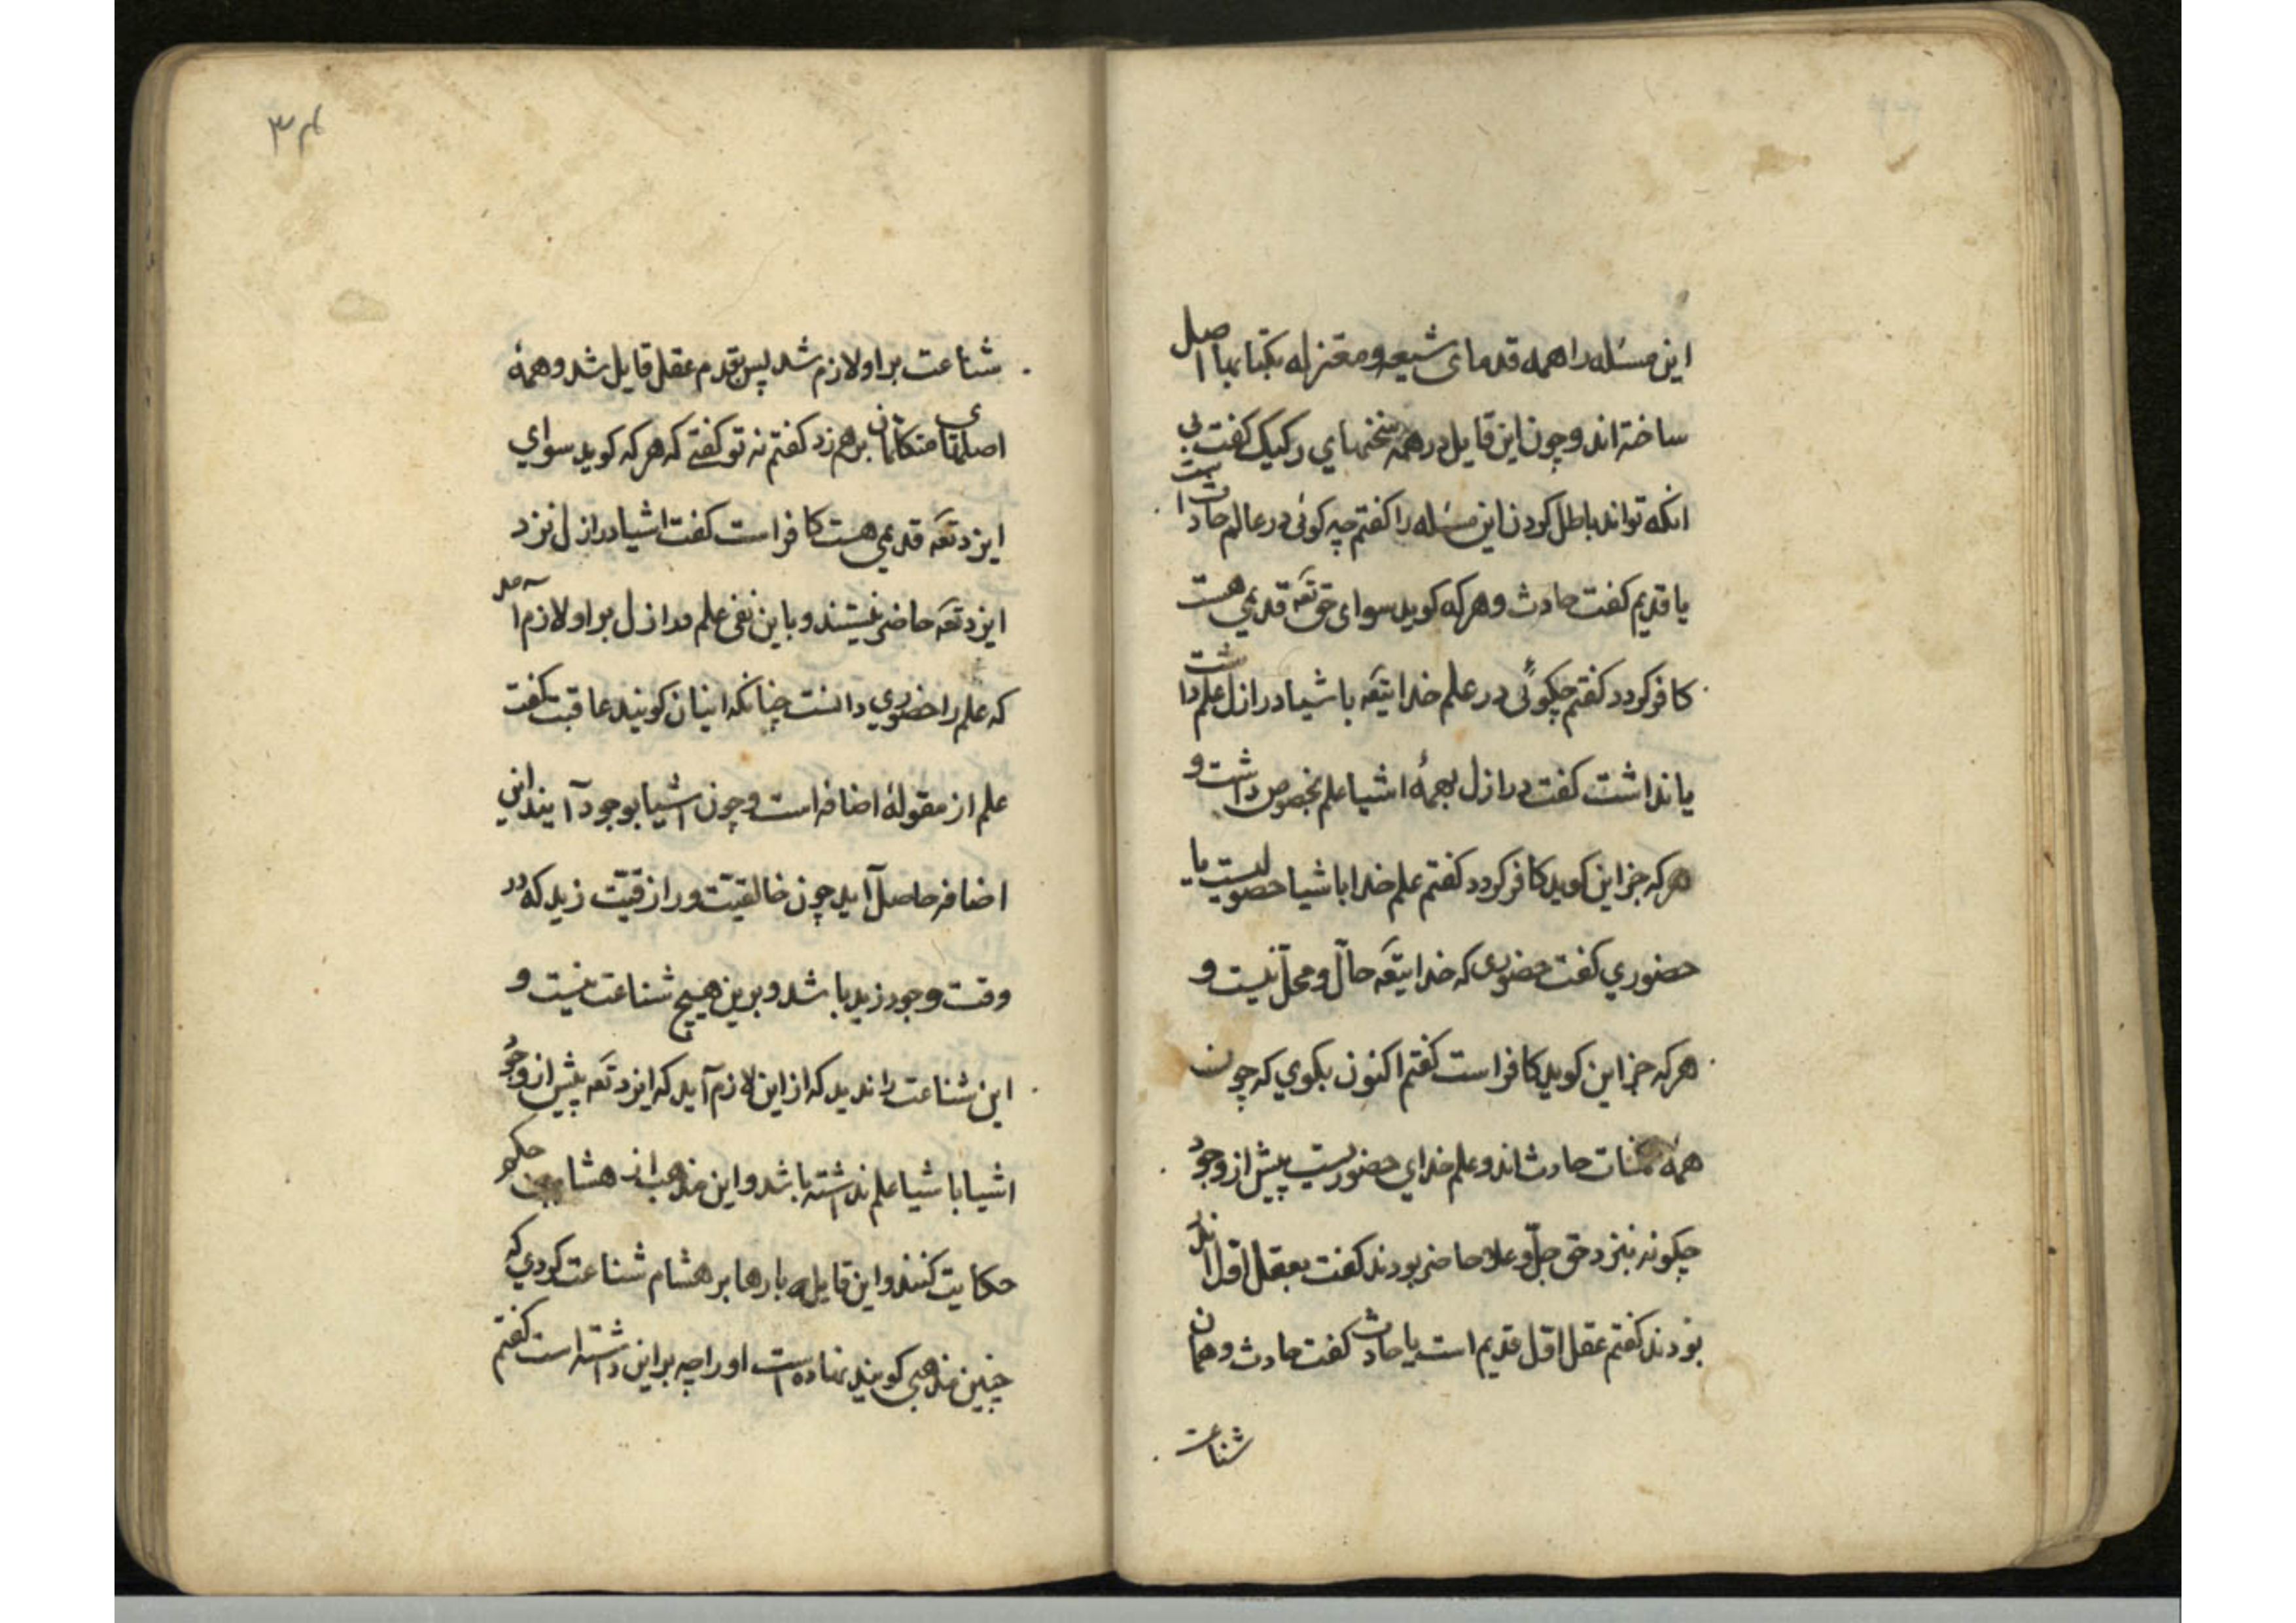 این مسئله را همه قدمای شیعه و معتزله بکتابها اصل
ساخته‌اند و چون این قایل در همه سخنهای رکیک گفت بی
انکه تواند باطل کردن این مسئله را گفتم چه کوئی در عالم حادث است
یا قدیم گفت حادث و هر که کوید سوای حق تعه قدیمی هست
کافر کردد گفتم چکوئی در علم خدایتعه باشیا در ازل علم داشت
یا نداشت گفت در ازل بهمهٔ اشیا علم بخصوص داشت و
هر که جز این کوید کافر کردد گفتم علم خدا باشیا حصولیست یا
حضوري گفت حضوری که خدایتعه حالّ و محلّ نیست و
هر که جز این کوید کافر است گفتم اکنون بکوي که چون
همهٔ ممکنات حادث‌اند و علم خدای حضوریست پیش از وجود
چکونه بنزد حق جلّ و علا حاضر بودند گفت بعقل اوّل اندر
بودند گفتم عقل اوّل قدیم است یا حادث گفت حادث و همان
شناعت
۳۴
شناعت بر او لازم شد پس بقدم عقل قایل شد و همهٔ
اصلهای متکلمان برهم زد گفتم نه تو گفتے که هر که کوید سوای
ایزد تعه قدیمی هست کافر است گفت اشیا در ازل نزد
ایزد تعه حاضر نیستند و باین نفی علم در ازل بر او لازم آمد
که علم را حضوري دانست چنانکه اینان کویند عاقبت گفت
علم از مقولهٔ اضافه است و چون اشیا بوجود آیند این
اضافه حاصل آید چون خالقیّت و رازقیّت زید که در
وقت وجود زید باشد و برین هیچ شناعت نیست و
این شناعت را ندید که از این لازم آید که ایزد تعه پیش از وجود
اشیا باشیا علم نداشته باشد و این مذهب از هشام بن حکم
حکایت کنند و این قایل بارها بر هشام شناعت کردي که
چنین مذهبی کویند نهاده است او را چه بر این داشته است گفتم